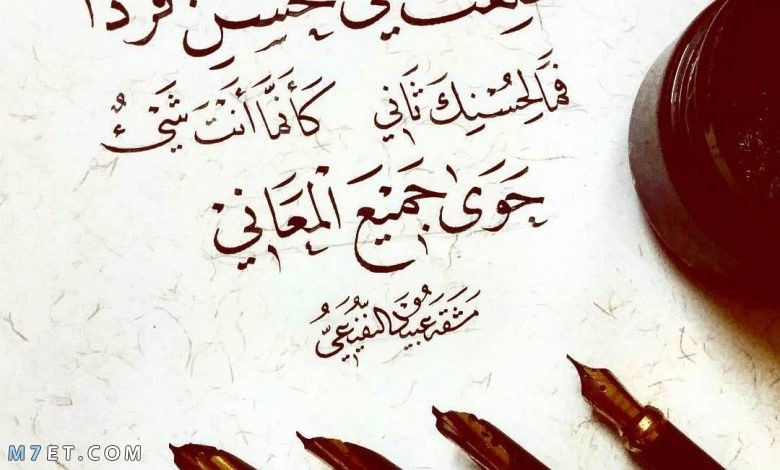 في الحسن فردا
فَمَا لِحُسْنِكَ ثَاني كَأَنَّمَا أَنْتَ شَيْءٌ
حَوَى جَمِيْعَ الْمَعَانِيْ
مَشَقَهُ عبيد النفيعي
M7ET.COM